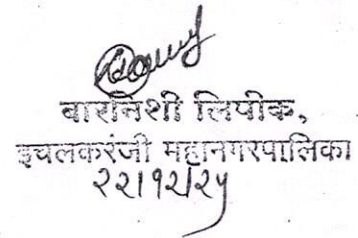 बारनिशी लिपीक,
इचलकरंजी महानगरपालिका
२२/१२/२५